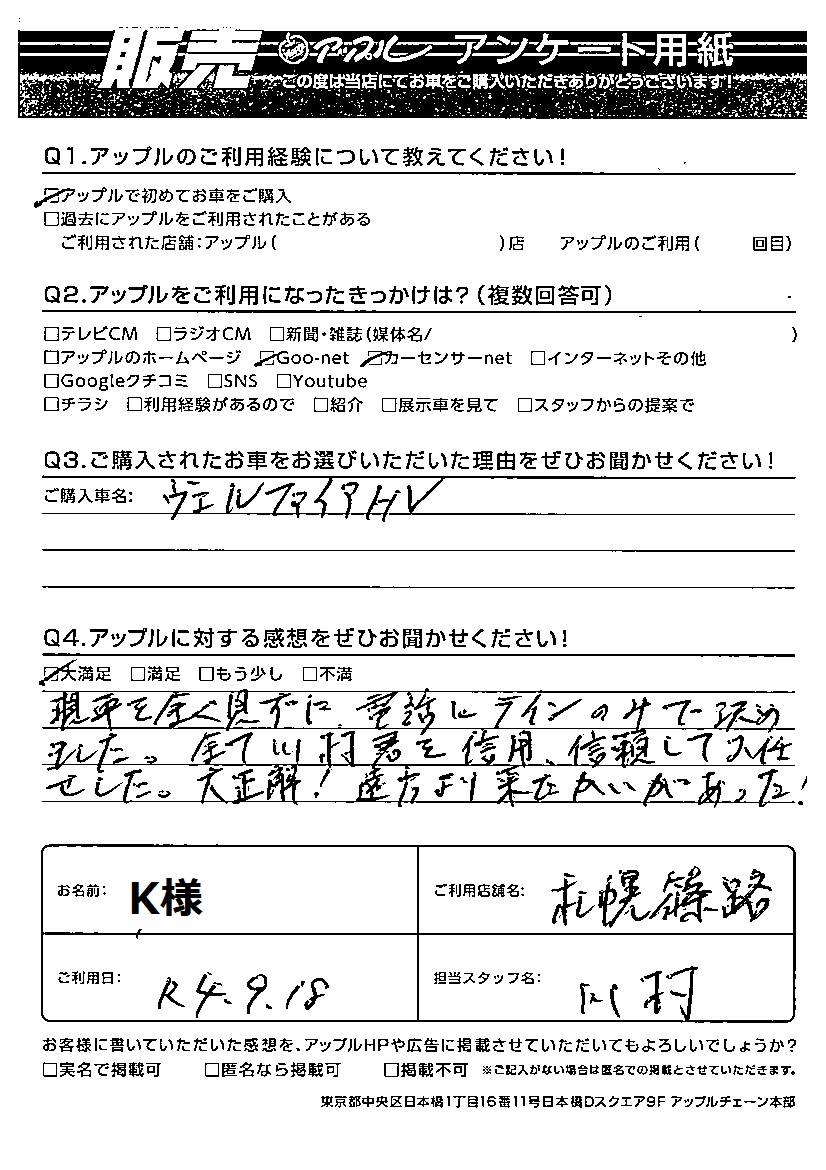 販売 アップル アンケート用紙
この度は当店にてお車をご購入いただきありがとうございます!
Q1.アップルのご利用経験について教えてください!
☑アップルで初めてお車をご購入
□過去にアップルをご利用されたことがある
ご利用された店舗:アップル( )店 アップルのご利用( 回目)
Q2.アップルをご利用になったきっかけは?(複数回答可)
□テレビCM □ラジオCM □新聞・雑誌(媒体名/ )
□アップルのホームページ ☑Goo-net ☑カーセンサーnet □インターネットその他
□Googleクチコミ □SNS □Youtube
□チラシ □利用経験があるので □紹介 □展示車を見て □スタッフからの提案で
Q3.ご購入されたお車をお選びいただいた理由をぜひお聞かせください!
ご購入車名: ヴェルファイアHV
Q4.アップルに対する感想をぜひお聞かせください!
☑大満足 □満足 □もう少し □不満
現車を全く見ずに、電話にラインのみで決め
ました。全て川村君を信用、信頼してお任
せした。大正解!遠方より来たかいがあった!
お名前: K様 ご利用店舗名: 札幌篠路
ご利用日: R4.9.18 担当スタッフ名: 川村
お客様に書いていただいた感想を、アップルHPや広告に掲載させていただいてもよろしいでしょうか?
□実名で掲載可 □匿名なら掲載可 □掲載不可 ※ご記入がない場合は匿名での掲載とさせていただきます。
東京都中央区日本橋1丁目16番11号日本橋Dスクエア9F アップルチェーン本部